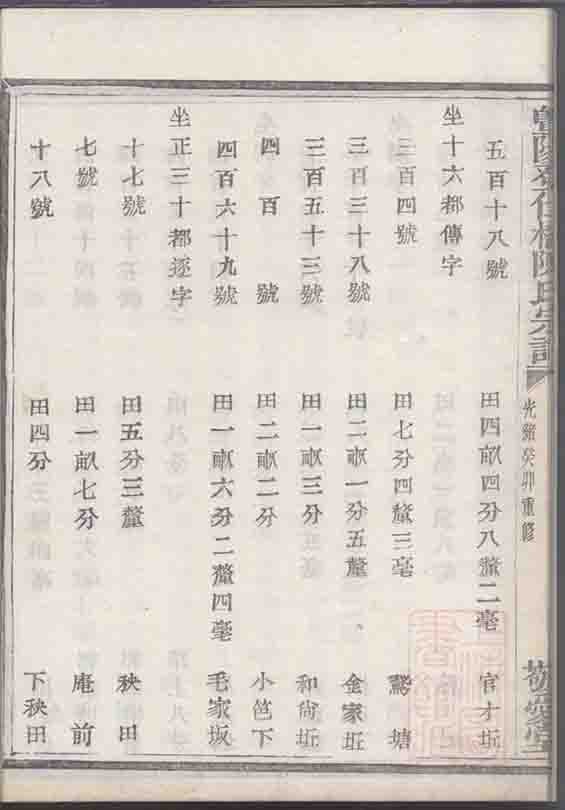 陳氏宗譜
光緒癸卯重修
五百十八號 田四畝四分八釐二毫 官才坵
坐十六都傳字
三百四號 田七分四釐三毫 鵞塘
三百三十八號 田二畝一分五釐 金家坵
三百五十三號 田一畝三分 和尙坵
四百 號 田二畝二分 小笆下
四百六十九號 田一畝六分二釐四毫 毛家坂
坐正三十都逐字
十七號 田五分三釐 秧田
七號 田一畝七分 庵前
十八號 田四分 下秧田